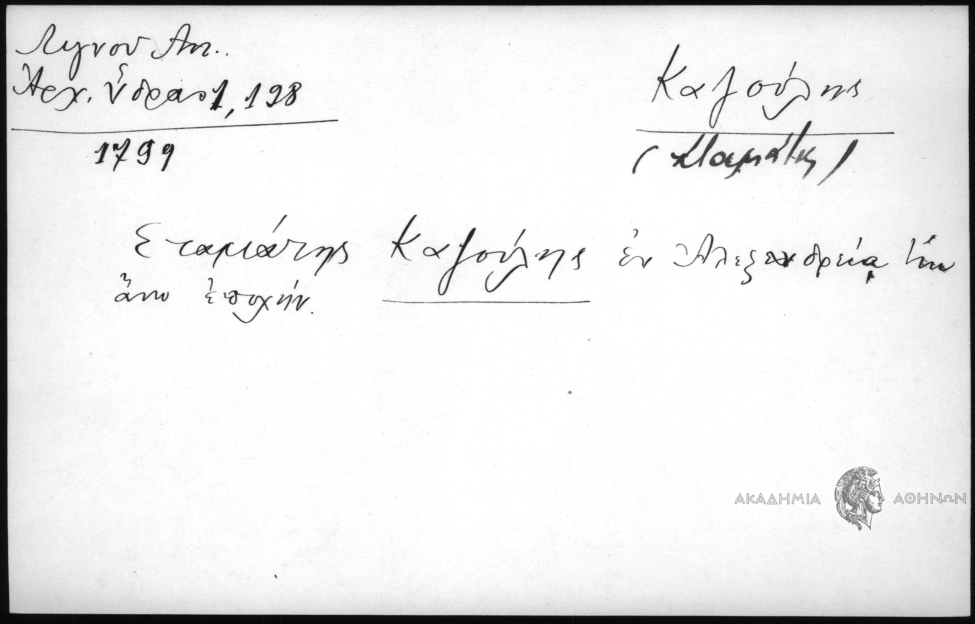 Λιγνού Αντ.
Ἀρχ. Ὕδρας 1, 198
1799
Καζούλης
(Σταμάτης)
Σταμάτης Καζούλης ἐν Ἀλεξανδρείᾳ τὴν
ἄνω ἐποχήν.
ΑΚΑΔΗΜΙΑ ΑΘΗΝΩΝ